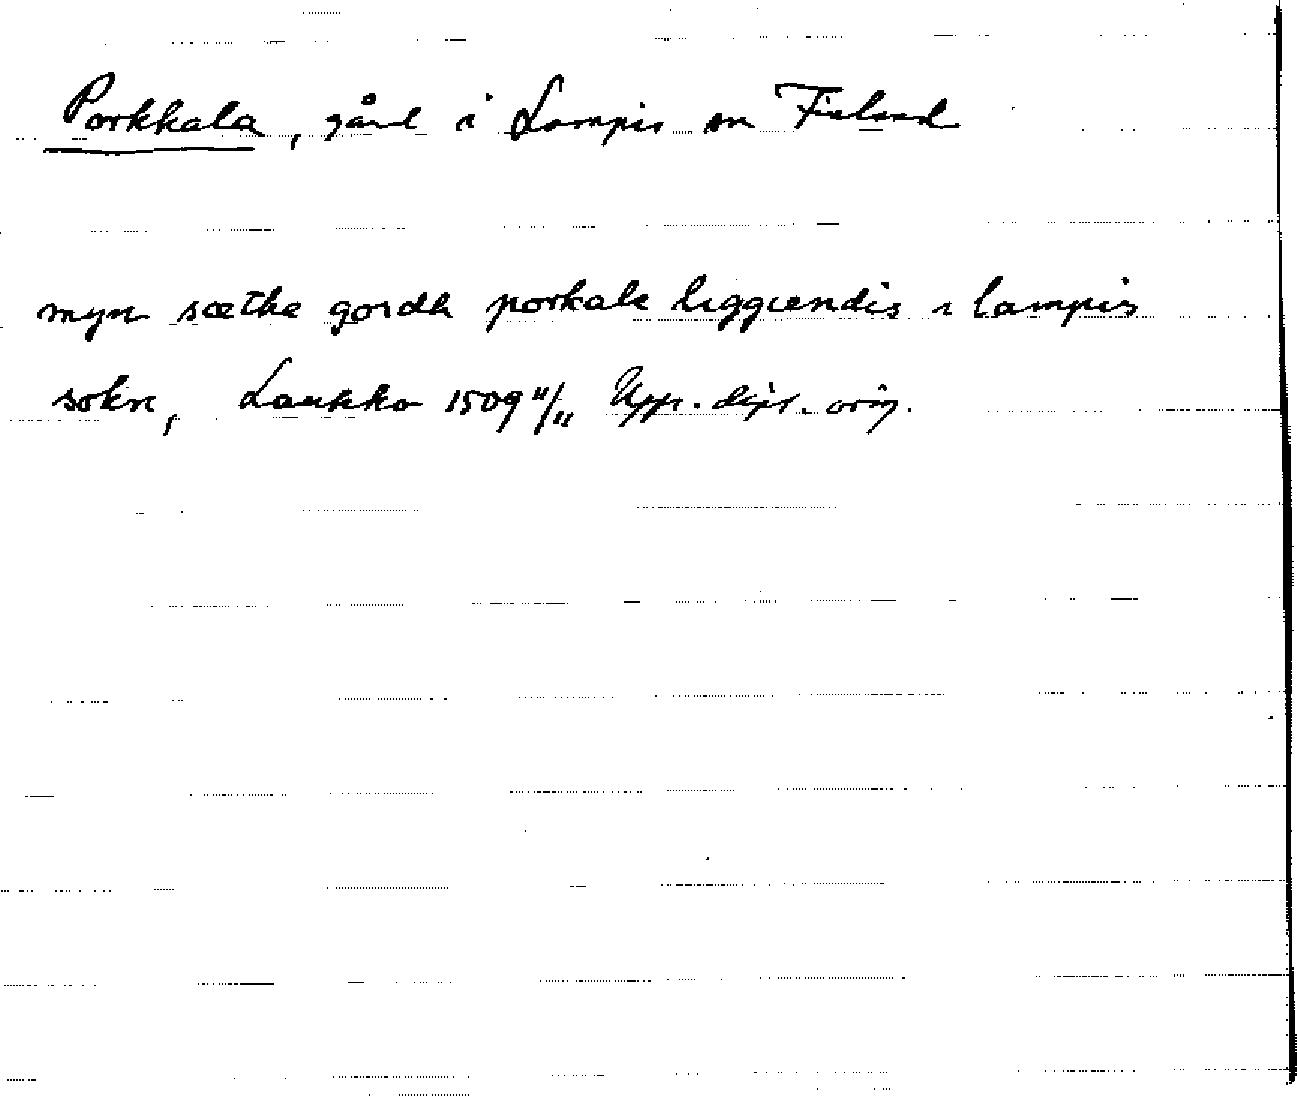 Porkkala, gård i Lampis sn Finland
myn sæthe gordh porkale liggiendis i lampis
sokn, Laukko 1509 11/11 Upps. dipl. orig.